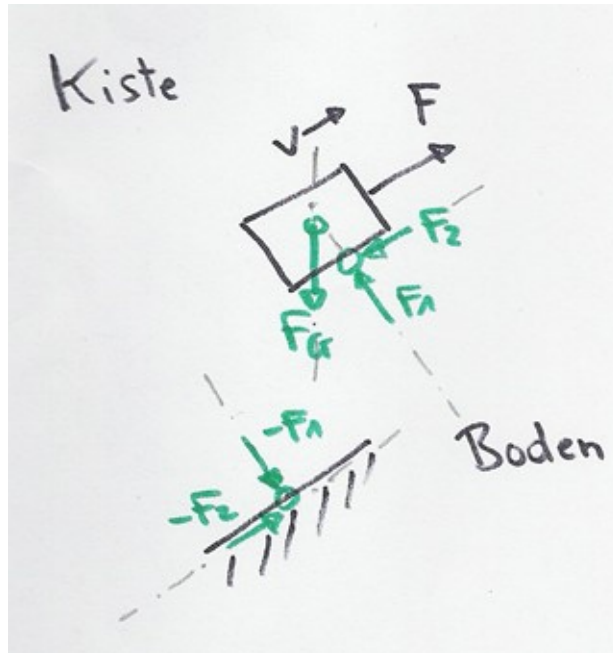 Kiste
V
F
F2
F1
FG
-F1
Boden
-F2